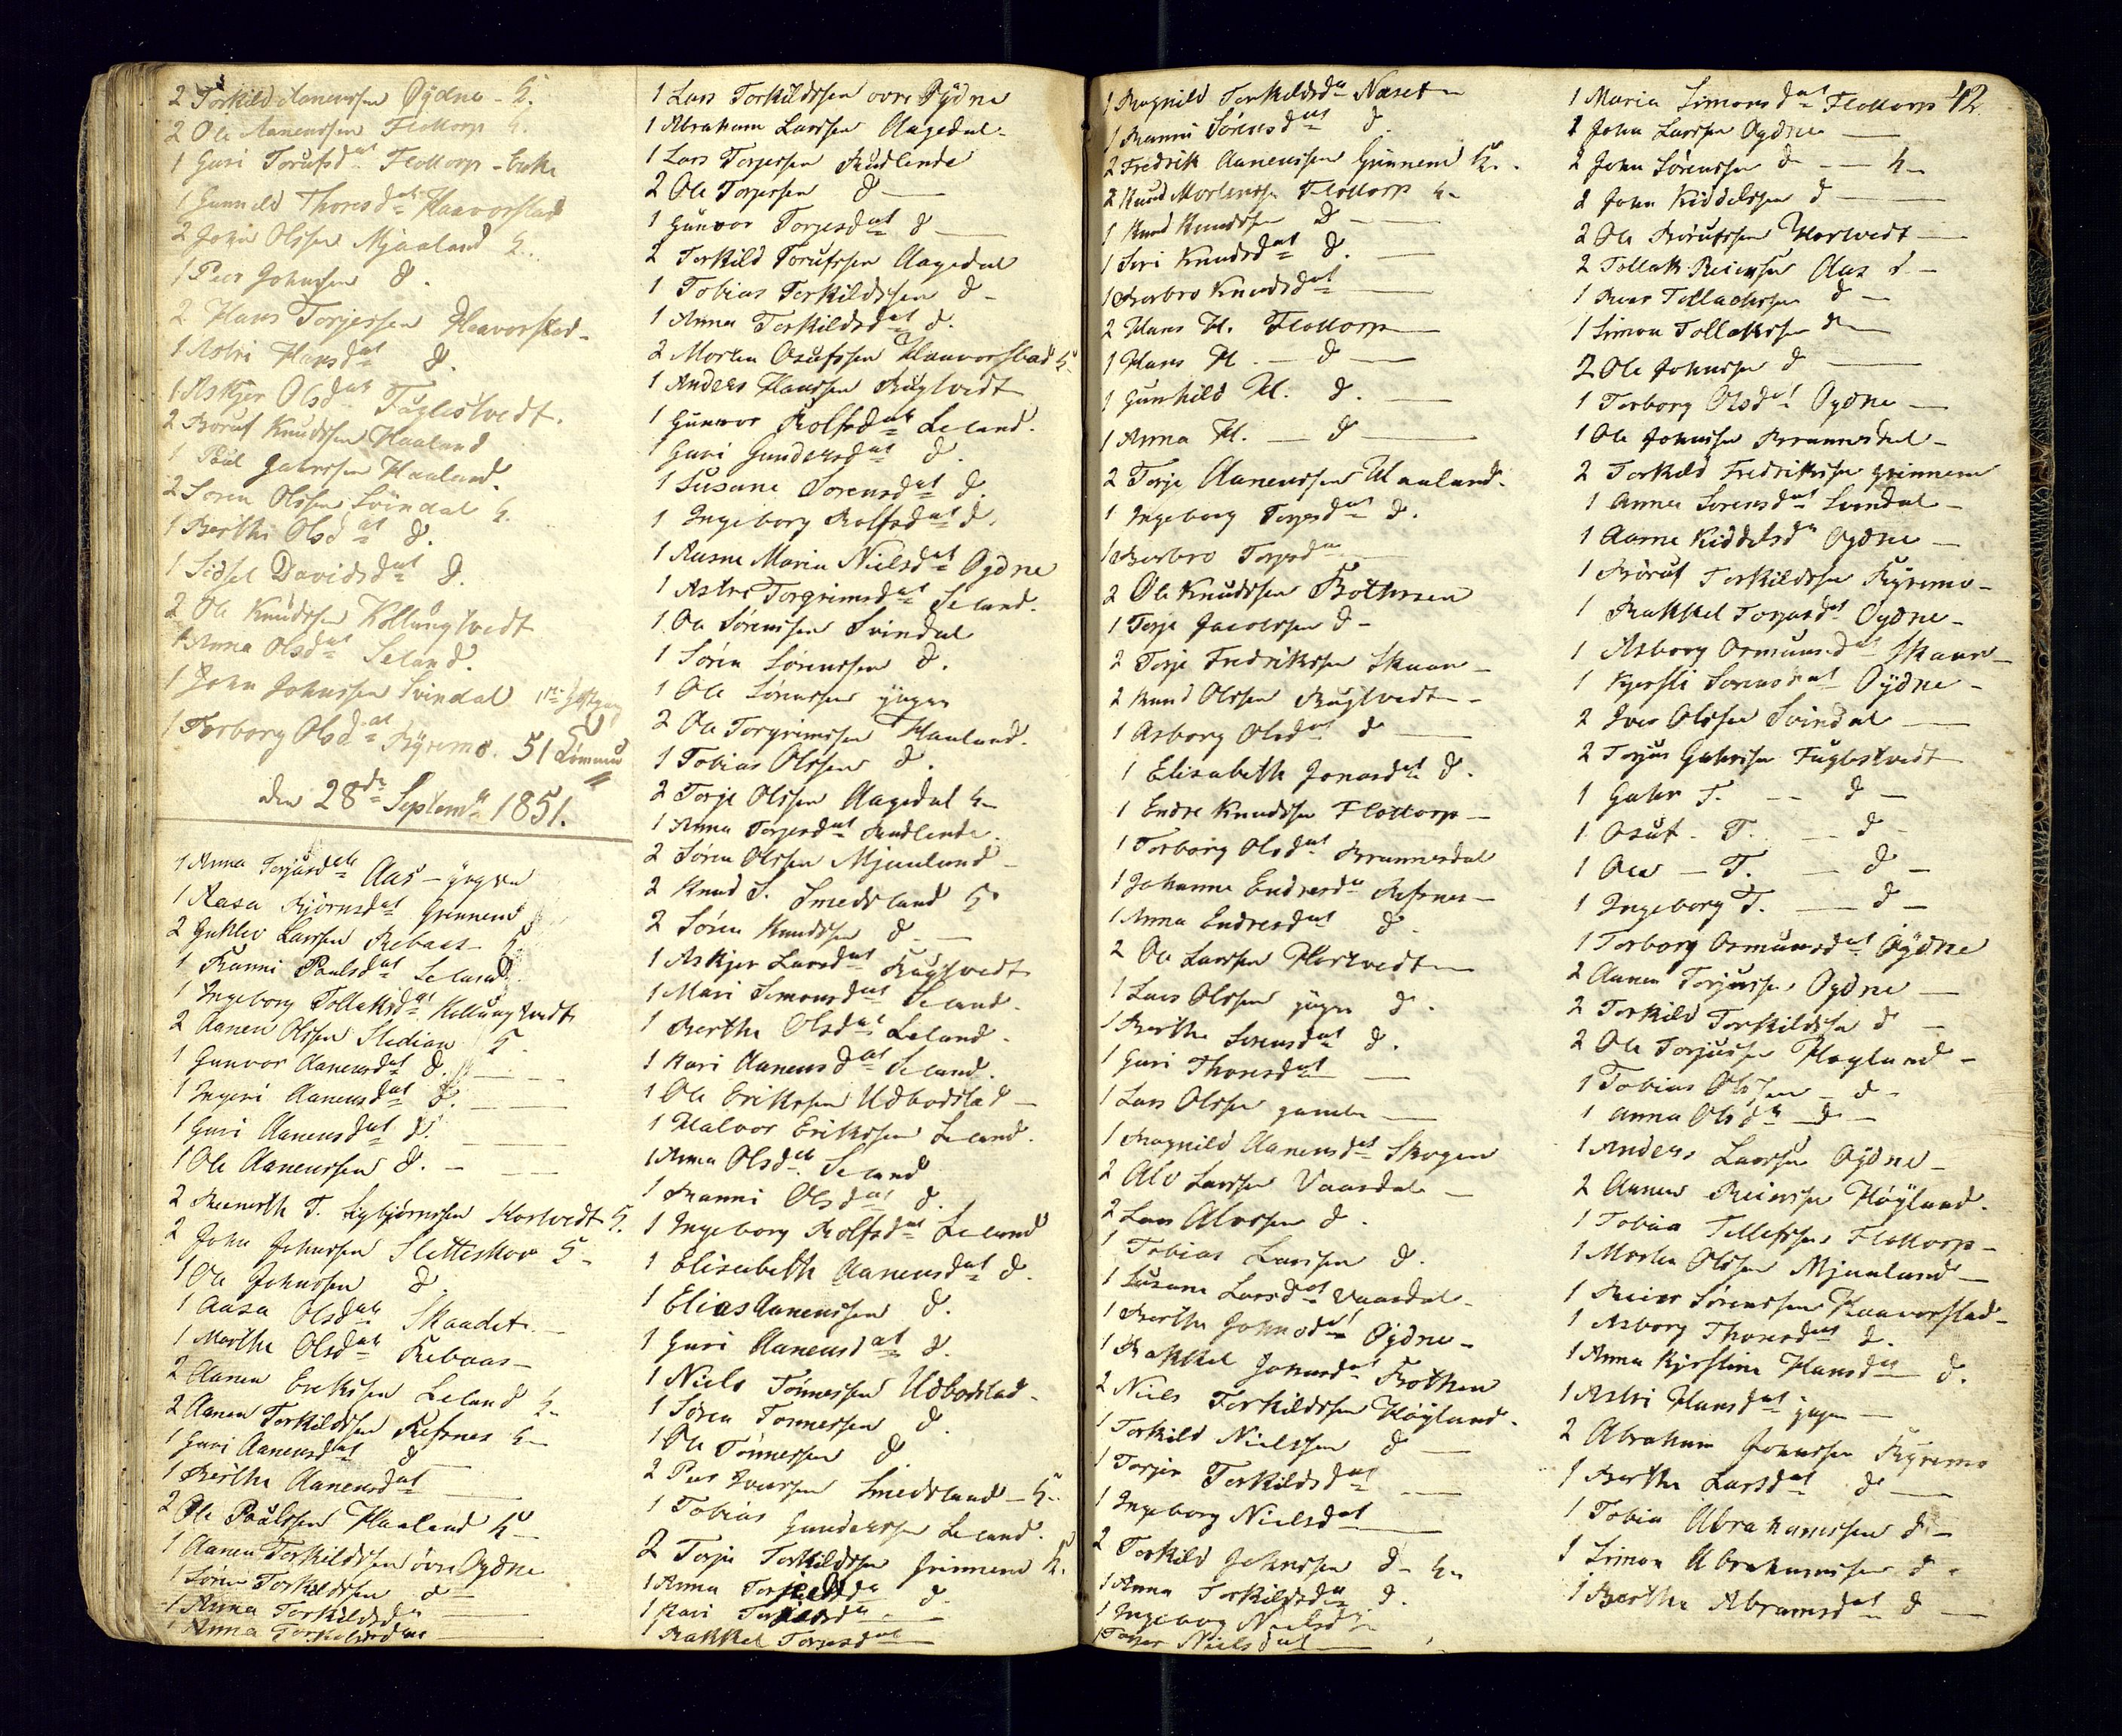 2 Torkild Aanenssen Øÿdna - h.
2 Ole Aanenssen Flottorp h.
1 Guri Torufsdat Flottorp - Enke
1 Gunnild Thoresdat Haavorstad
2 John Olssen Mjaaland h.
1 Peer Johnssen d.
2 Hans Torjessen Haavorstad -
1 Astri Hansdat d.
1 Askjer Olsdat Fuglestvedt.
2 Boruf Knudssen Haaland
1 Poul Haaland.
2 Soren Olssen Svindal h.
1 Berthe Olsdat d.
1 Sidsel Davidsdat d.
2 Ole Knudssen Kollungtvedt
1 Anna Olsdat Seland.
1 John Johnssen Svindal
1 Torborg Olsdat Bÿremo. 51
den 28de Septembr 1851.
1 Anna Torjusdat Aas - yngre
1 Aasa Biörnsdat Grinnem
2 Gutlev Larssen Rebaas h
1 Ranni Paulsdat Seland
1 Ingeborg Tollaksdat Kollungtvedt
2 Aanen Olssen Stedian h.
1 Gunvor Aanensdat d.
1 Ingeri Aanensdat d.
1 Guri Aanensdat d.
1 Ole Aanenssen d. -
2 T. Sigbjørnssen Hortvedt h.
2 John Johnssen Sletteskov h -
1 Ole Johnssen d
1 Aasa Olsdat Skaadet -
1 Marthe Olsdat Rebaas -
2 Aanen Erikssen Leland h -
2 Aanen Torkildssen Refsnes h -
1 Guri Aanensdat d
1 Berthe Aanensdat
2 Ole Paulssen Haaland h -
1 Aanen Torkildssen övre Oydna
1 Sören Torkildssen d
1 Anna Torkildsdat
1 Anna Torkildsdat
1 Lars Torkildssen ovre Øÿdna
1 Abraham Larssen Aagedal -
1 Lars Torjessen Rudlende
2 Ole Torjessen d
1 Gunvor Torjesdat d
2 Torkild Torufssen Aagedal
1 Tobias Torkildssen d -
1 Anna Torkildsdat d.
2 Morten Osufssen Haavorstad h
1 Anders Hanssen Rugtvedt
1 Gunvor Rolfsdat Leland.
1 Guri Gundersdat d.
1 Susane Sorensdat d.
1 Ingeborg Rolfsdat d.
1 Maria Nielsdat Oydne
1 Astri Torgrimsdat Seland.
1 Ole Sörenssen Svindal
1 Sören Sörenssen d.
1 Ole Sörenssen yngre
2 Ole Torgrimssen Haaland.
1 Tobias Olssen d.
2 Torje Olssen Aagedal h -
1 Anna Torjesdat Rudlende.
2 Sören Olssen Mjaaland -
2 Knud S. Smedsland h
2 Sören Knudssen d. -
1 Askjer Larsdat Rugtvedt
1 Mari Simonsdat Seland.
1 Berthe Olsdat Leland.
1 Kari Aanensdat Seland.
1 Ole Erikssen Udbodstad -
1 Halvor Erikssen Leland.
1 Anna Olsdat Seland
1 Ranni Olsdat d.
1 Ingeborg Rolfsdat Leland
1 Elisabeth Aanensdat d.
1 Elias Aanenssen d.
1 Guri Aanensdat d.
1 Niels Tönnessen Udbodstad -
1 Sören Tonnessen d.
1 Ole Tönnessen d
2 Peer Iverssen Smedsland - h -
1 Tobias Gunderssen Leland.
2 Torje Torkildssen Grinnem h.
1 Anna d.
1 Kari d.
1 Rakkel Torjesdat
1 Ragnild Torkildsdr Naset -
1 Ranni Sörensdat d.
2 Fredrik Aanenssen Grinnem h.
2 Knud Mortenssen Flottorp h -
1 Knud Knudssen d -
1 Siri Knudsdat d. -
1 Berbro Knudsdat
2 Hans H. Flottorp
1 Hans H. - d -
1 Gunhild H. d. -
1 Anna H. - d -
2 Torje Aanenssen Haaland.
1 Ingeborg Torjesdat d.
1 Berbro Torjesdr -
2 Ole Knudssen
1 Torje Jacobssen d -
2 Torje Fredrikssen Skaar -
2 Knud Olssen Rugtvedt -
1 Asborg Olsdat d
1 Elisabeth Jonasdat d.
1 Endre Knudssen Flottorp -
1 Torborg Olsdat Brunnesdal
1 Johanne Endresdr Refsnes -
1 Anna Endresdat d.
2 Ole Larssen Hortvedt -
1 Lars Olssen yngre d.
1 Berthe Sorensdat d.
1 Guri Thoresdat -
1 Lars Olssen gamle -
1 Ragnild Aanensdat Skogen
2 Alv Larssen Vaardal -
2 Lars Alvssen d.
1 Tobias Larssen d.
1 Susane Larsdat Vaardal -
1 Berthe Johnsdat Oydne -
1 Rakkel Jonasdat
2 Niels Torkildssen Höÿland.
1 Torkild Nielssen d -
1 Torjer Torkildsdat
1 Ingeborg Nielsdat
2 Torkild Johnssen d - h -
1 Anna Torkildsdr d.
1 Ingeborg Nielsdr
1 Nielsdat
1 Maria Simonsdat Flottorp 42.
1 John Larssen Oydne
2 John Sörenssen d - h -
2 John Kiddelssen d
2 Ole Borufssen Hortvedt
2 Tollak Reierssen Aas d. -
1 Reier Tollakssen d -
1 Simon Tollakssen d -
2 Ole Johnssen d
1 Torborg Olsdat Oydne -
1 Ole Johnssen Brunnesdal -
2 Torkild Fredrikssen Grinnem
1 Anna Sorensdat Svindal -
1 Aanne Kiddelsdr Oydne -
1 Böruf Torkildssen Bÿremo -
1 Rakkel Torjusdat Oydne -
1 Asborg Osmunsdat Skaar -
1 Kjersti Sorensdat Oÿdne -
2 Iver Olssen Svindal
2 Torjus Gahrssen Fuglestvedt
1 Gahr T. - d -
1 Osuf - T. - d -
1 Ole - T. - d -
1 Ingeborg T. - d -
1 Torborg Osmunsdat Øÿdne
2 Aanen Torjussen Oydne -
2 Torkild Torkildssen d -
2 Ole Torjussen Hogland -
1 Tobias Olssen - d -
1 Anna Olsdr - d -
1 Anders Larssen Oÿdne -
2 Aanen Reierssen Höÿland.
1 Tobias Tellefssen Flottorp -
1 Morten Olssen Mjaaland -
1 Reier Sörenssen Haavorstad -
1 Asborg Thoresdat d.
1 Anna Kjerstine Hansdr d.
1 Astri Hansdat yngre -
2 Abraham Johnssen Bÿremo
1 Berthe Larsdat d
1 Tobias Abrahamssen d -
1 Simon Abrahamssen d -
1 Berthe Abramsdat d -